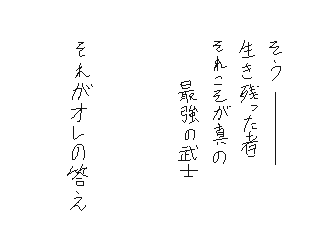 そう――
生き残った者
それこそが真の
最強の武士
それがオレの答え